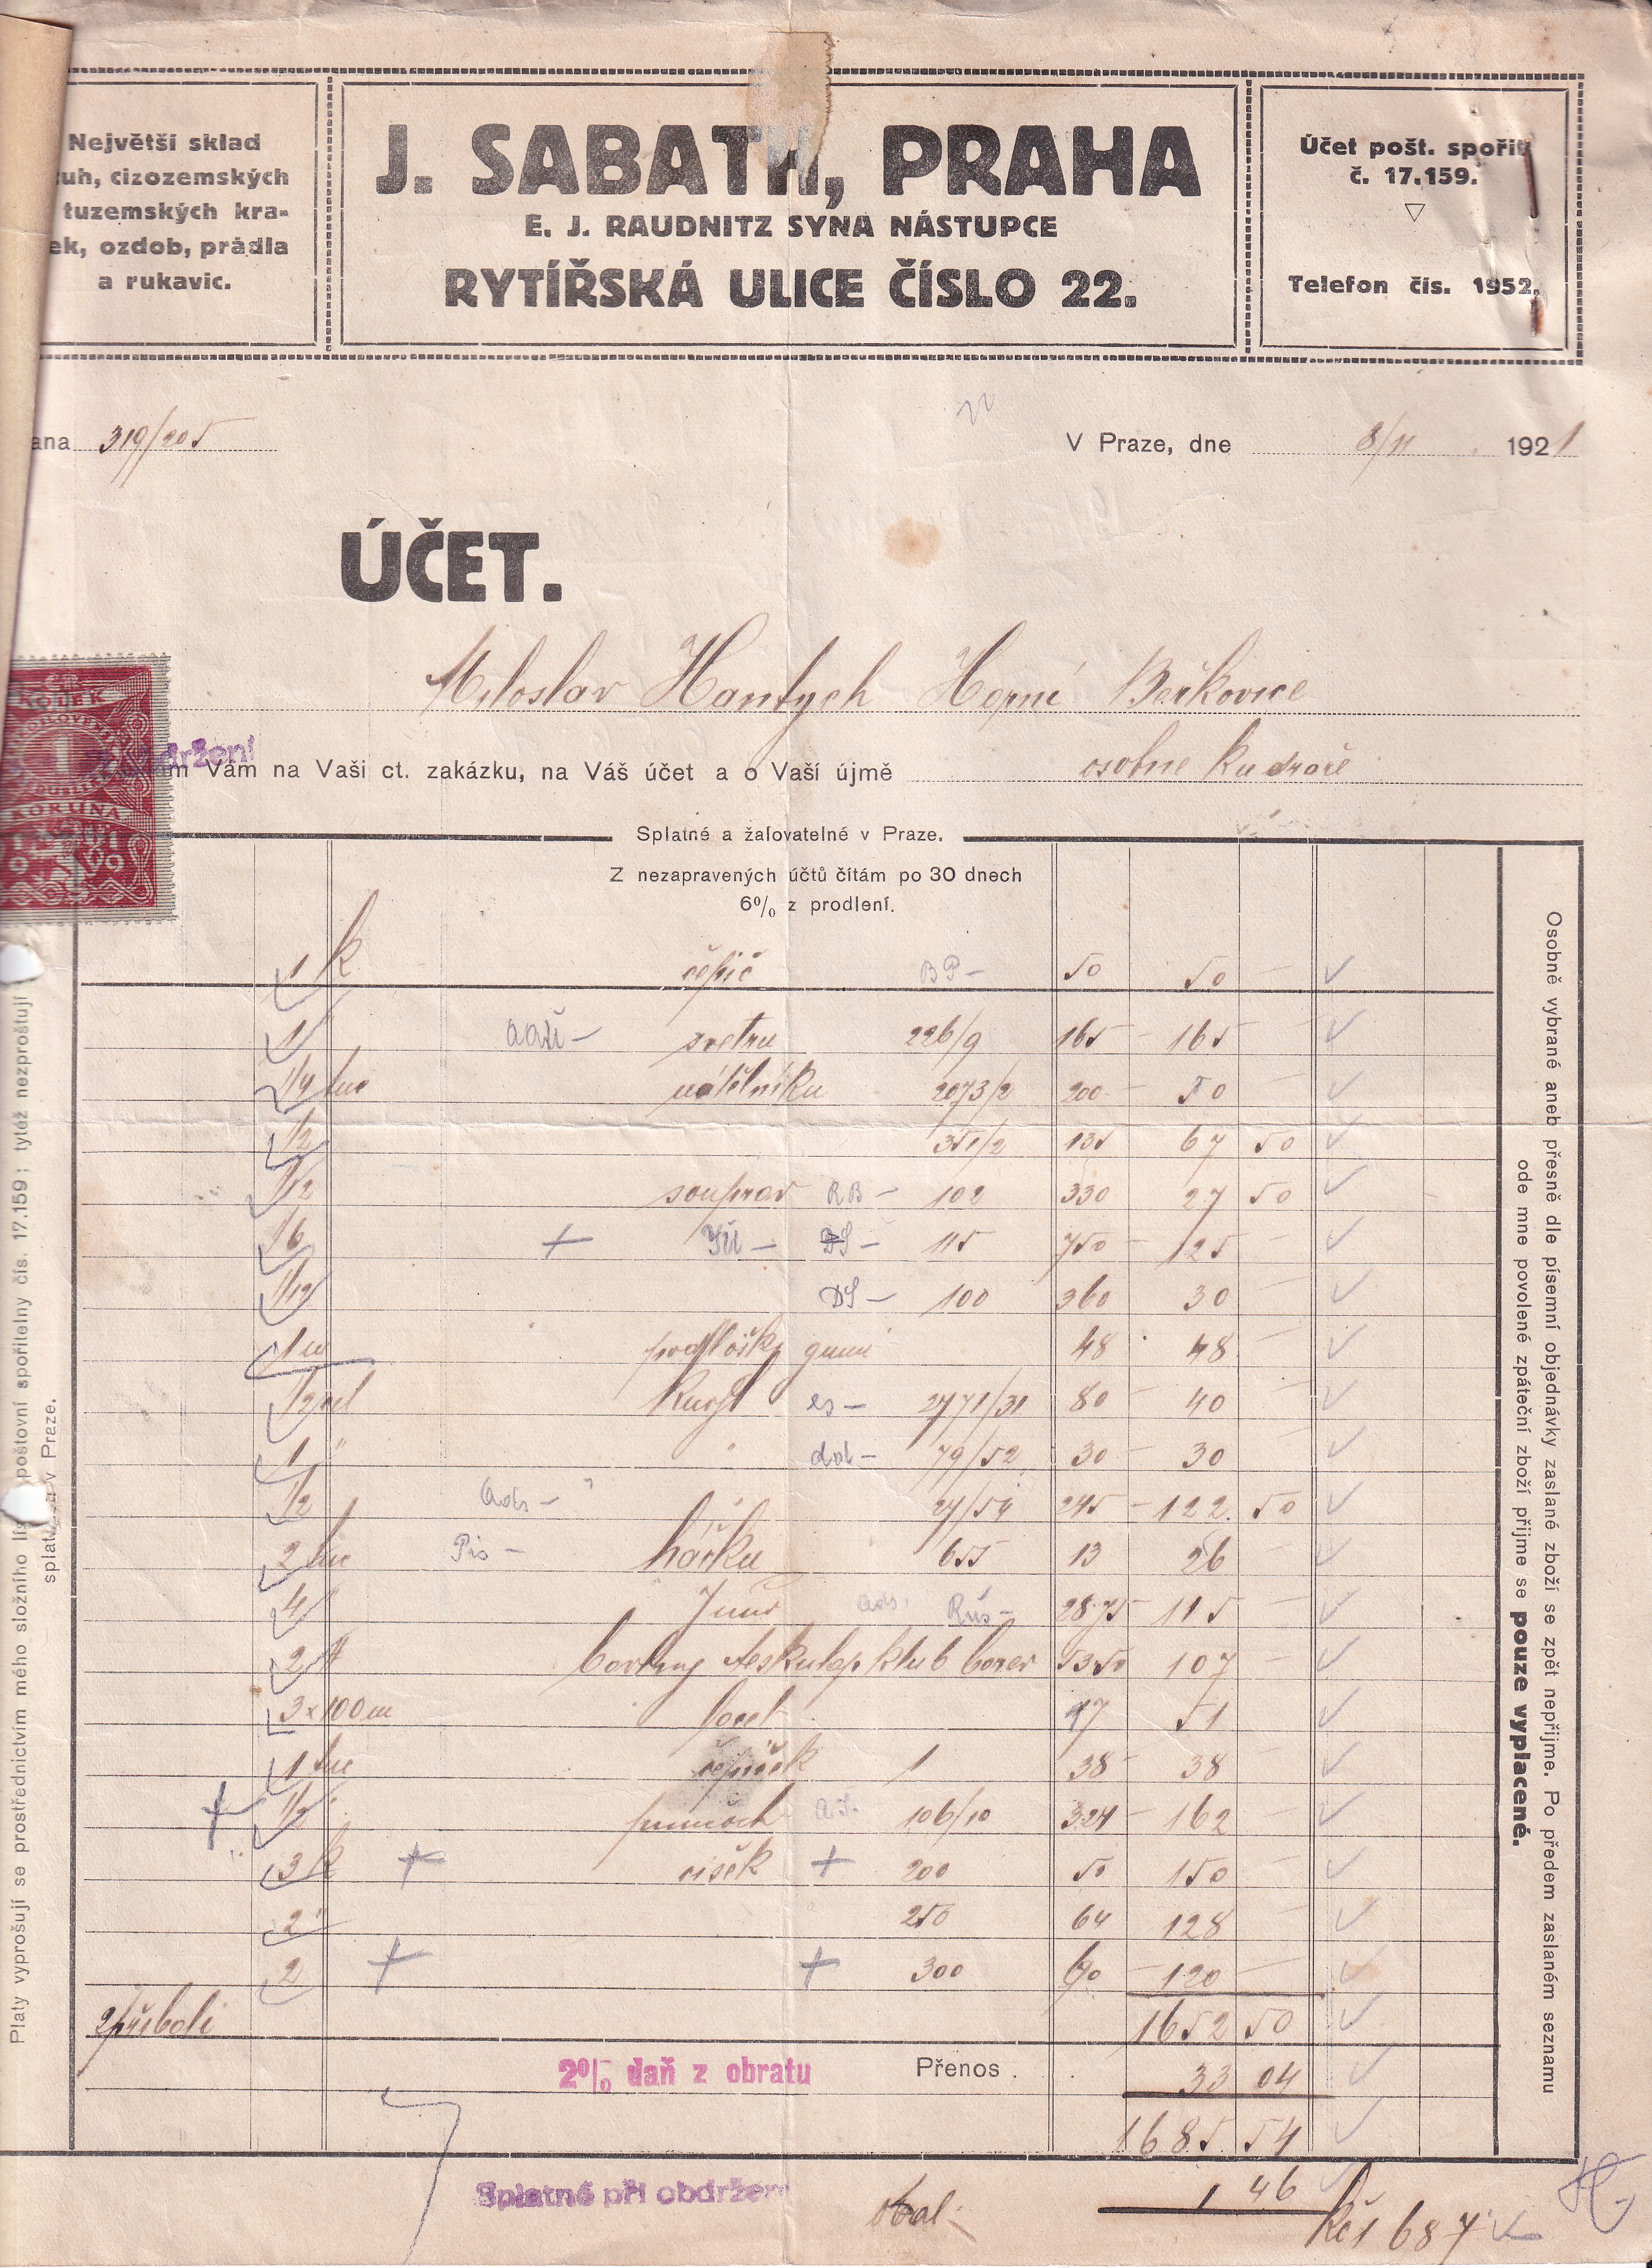 Největší sklad
tuh, cizozemských
tuzemských kra-
ek, ozdob, prádla
a rukavic.
J. SABATH, PRAHA
E. J. RAUDNITZ SYNA NÁSTUPCE
RYTÍŘSKÁ ULICE ČÍSLO 22.
Účet pošt. spořit.
č. 17.159.
Telefon čís. 1952.
ana 319/205
V Praze, dne 8/11 1921
ÚČET.
Miloslav Hantych Horní Beřkovice
držení
Vám na Vaši ct. zakázku, na Váš účet a o Vaší újmě osobne
1
KORUNA
Splatné a žalovatelné v Praze.
Z nezapravených účtů čítám po 30 dnech
6% z prodlení.
1 k čepič BP- 50 50 -
1 svetru 226/9 165 - 165 -
1/4 tuc nátělníku 2073/2 200 - 50 -
1/2 351/2 135 67 50
1/12 souprav RB- 102 330 27 50
1/6 + DS- 115 750 - 125 -
1/12 DS- 100 360 30 -
podložky gumi 48 48 -
1/2 es- 2771/31 80 - 40 -
1 " " dol- 79/52 30 - 30 -
1/2 27/54 245 - 122 50
2 tuc Pis- háčku 655 13 26 -
4 Rus- 28 75 115 -
2 Aeskulap klub 53 50 107 -
3 x 100 m 17 51 -
1 tuc čepiček 1 38 - 38 -
+ 1/2 " punčoch 106/10 324 - 162 -
3 k + + 200 50 150 -
2 " 250 64 128 -
2 + + 300 60 - 120 -
2 příboli 1652 50
2% daň z obratu Přenos . 33 04
1685 54
Splatné při obdržení obal 1 46
Kč 1687
Osobně vybrané aneb přesně dle písemní objednávky zaslané zboží se zpět nepřijme. Po předem zaslaném seznamu
ode mne povolené zpáteční zboží přijme se pouze vyplacené.
Platy vyprošují se prostřednictvím mého složního lis poštovní spořitelny čís. 17.159; tytéž nezproštují
splat v Praze.